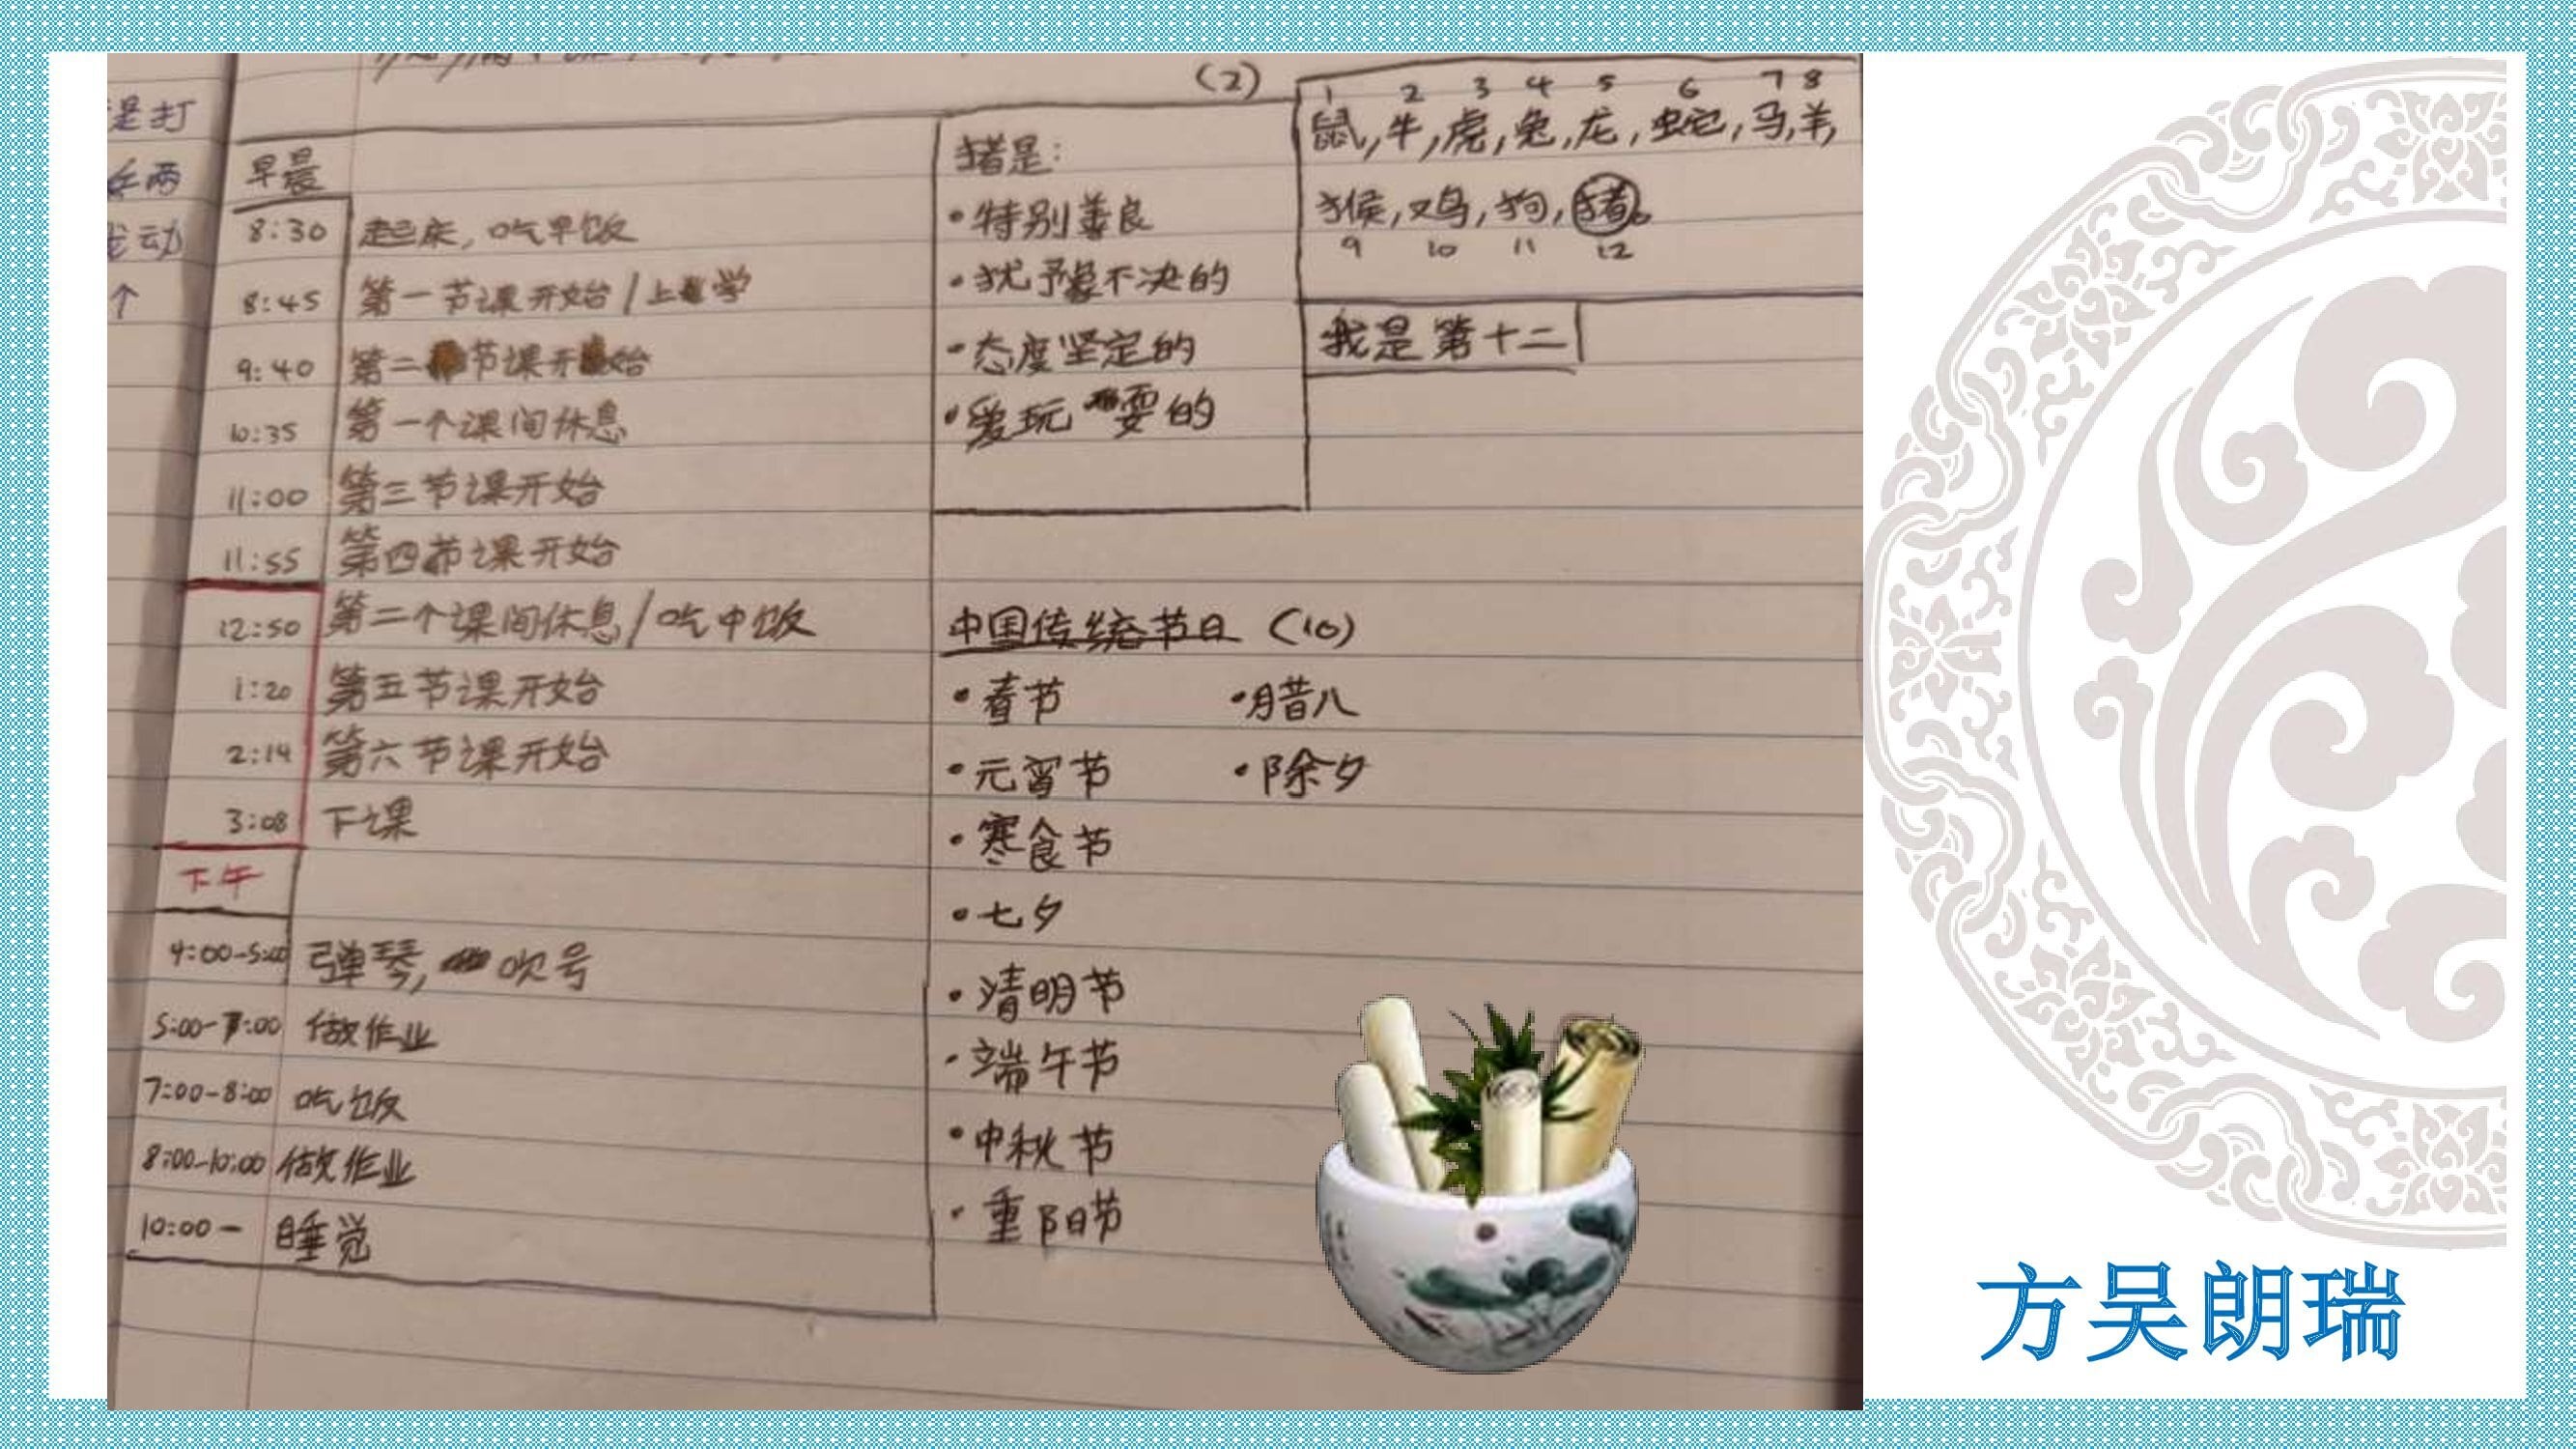 是打
乒两
动
↑
早晨
8:30 起床,吃早饭
8:45 第一节课开始/上学
9:40 第二节课开始
10:35 第一个课间休息
11:00 第三节课开始
11:55 第四节课开始
12:50 第二个课间休息/吃中饭
1:20 第五节课开始
2:14 第六节课开始
3:08 下课
下午
4:00-5:00 弹琴, 吹号
5:00-7:00 做作业
7:00-8:00 吃饭
8:00-10:00 做作业
10:00- 睡觉
(2)
猪是:
•特别善良
•犹予象不决的
•态度坚定的
•爱玩耍的
1 2 3 4 5 6 7 8
鼠,牛,虎,兔,龙,蛇,马,羊,
猴,鸡,狗,猪。
9 10 11 12
我是第十二
中国传统节日 (10)
•春节 •腊八
•元宵节 •除夕
•寒食节
•七夕
•清明节
•端午节
•中秋节
•重阳节
方吴朗瑞